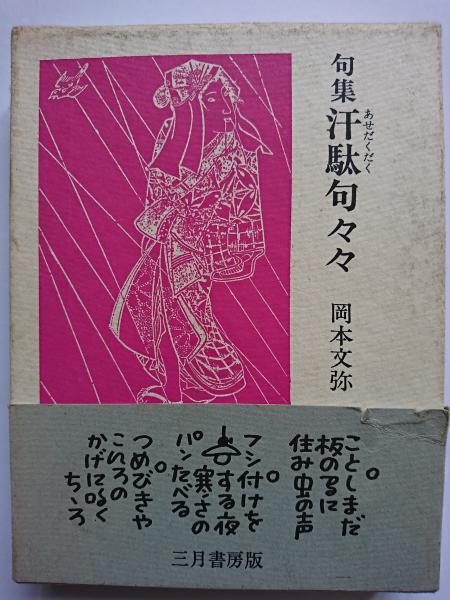 句集 汗駄句々々
あせだくだく
岡本文弥
ことしまだ
板の に
住み虫の声
フシ付けを
する夜寒さの
パンたべる
つめびきや
こゝろの
かげに く
ちゝろ
三月書房版